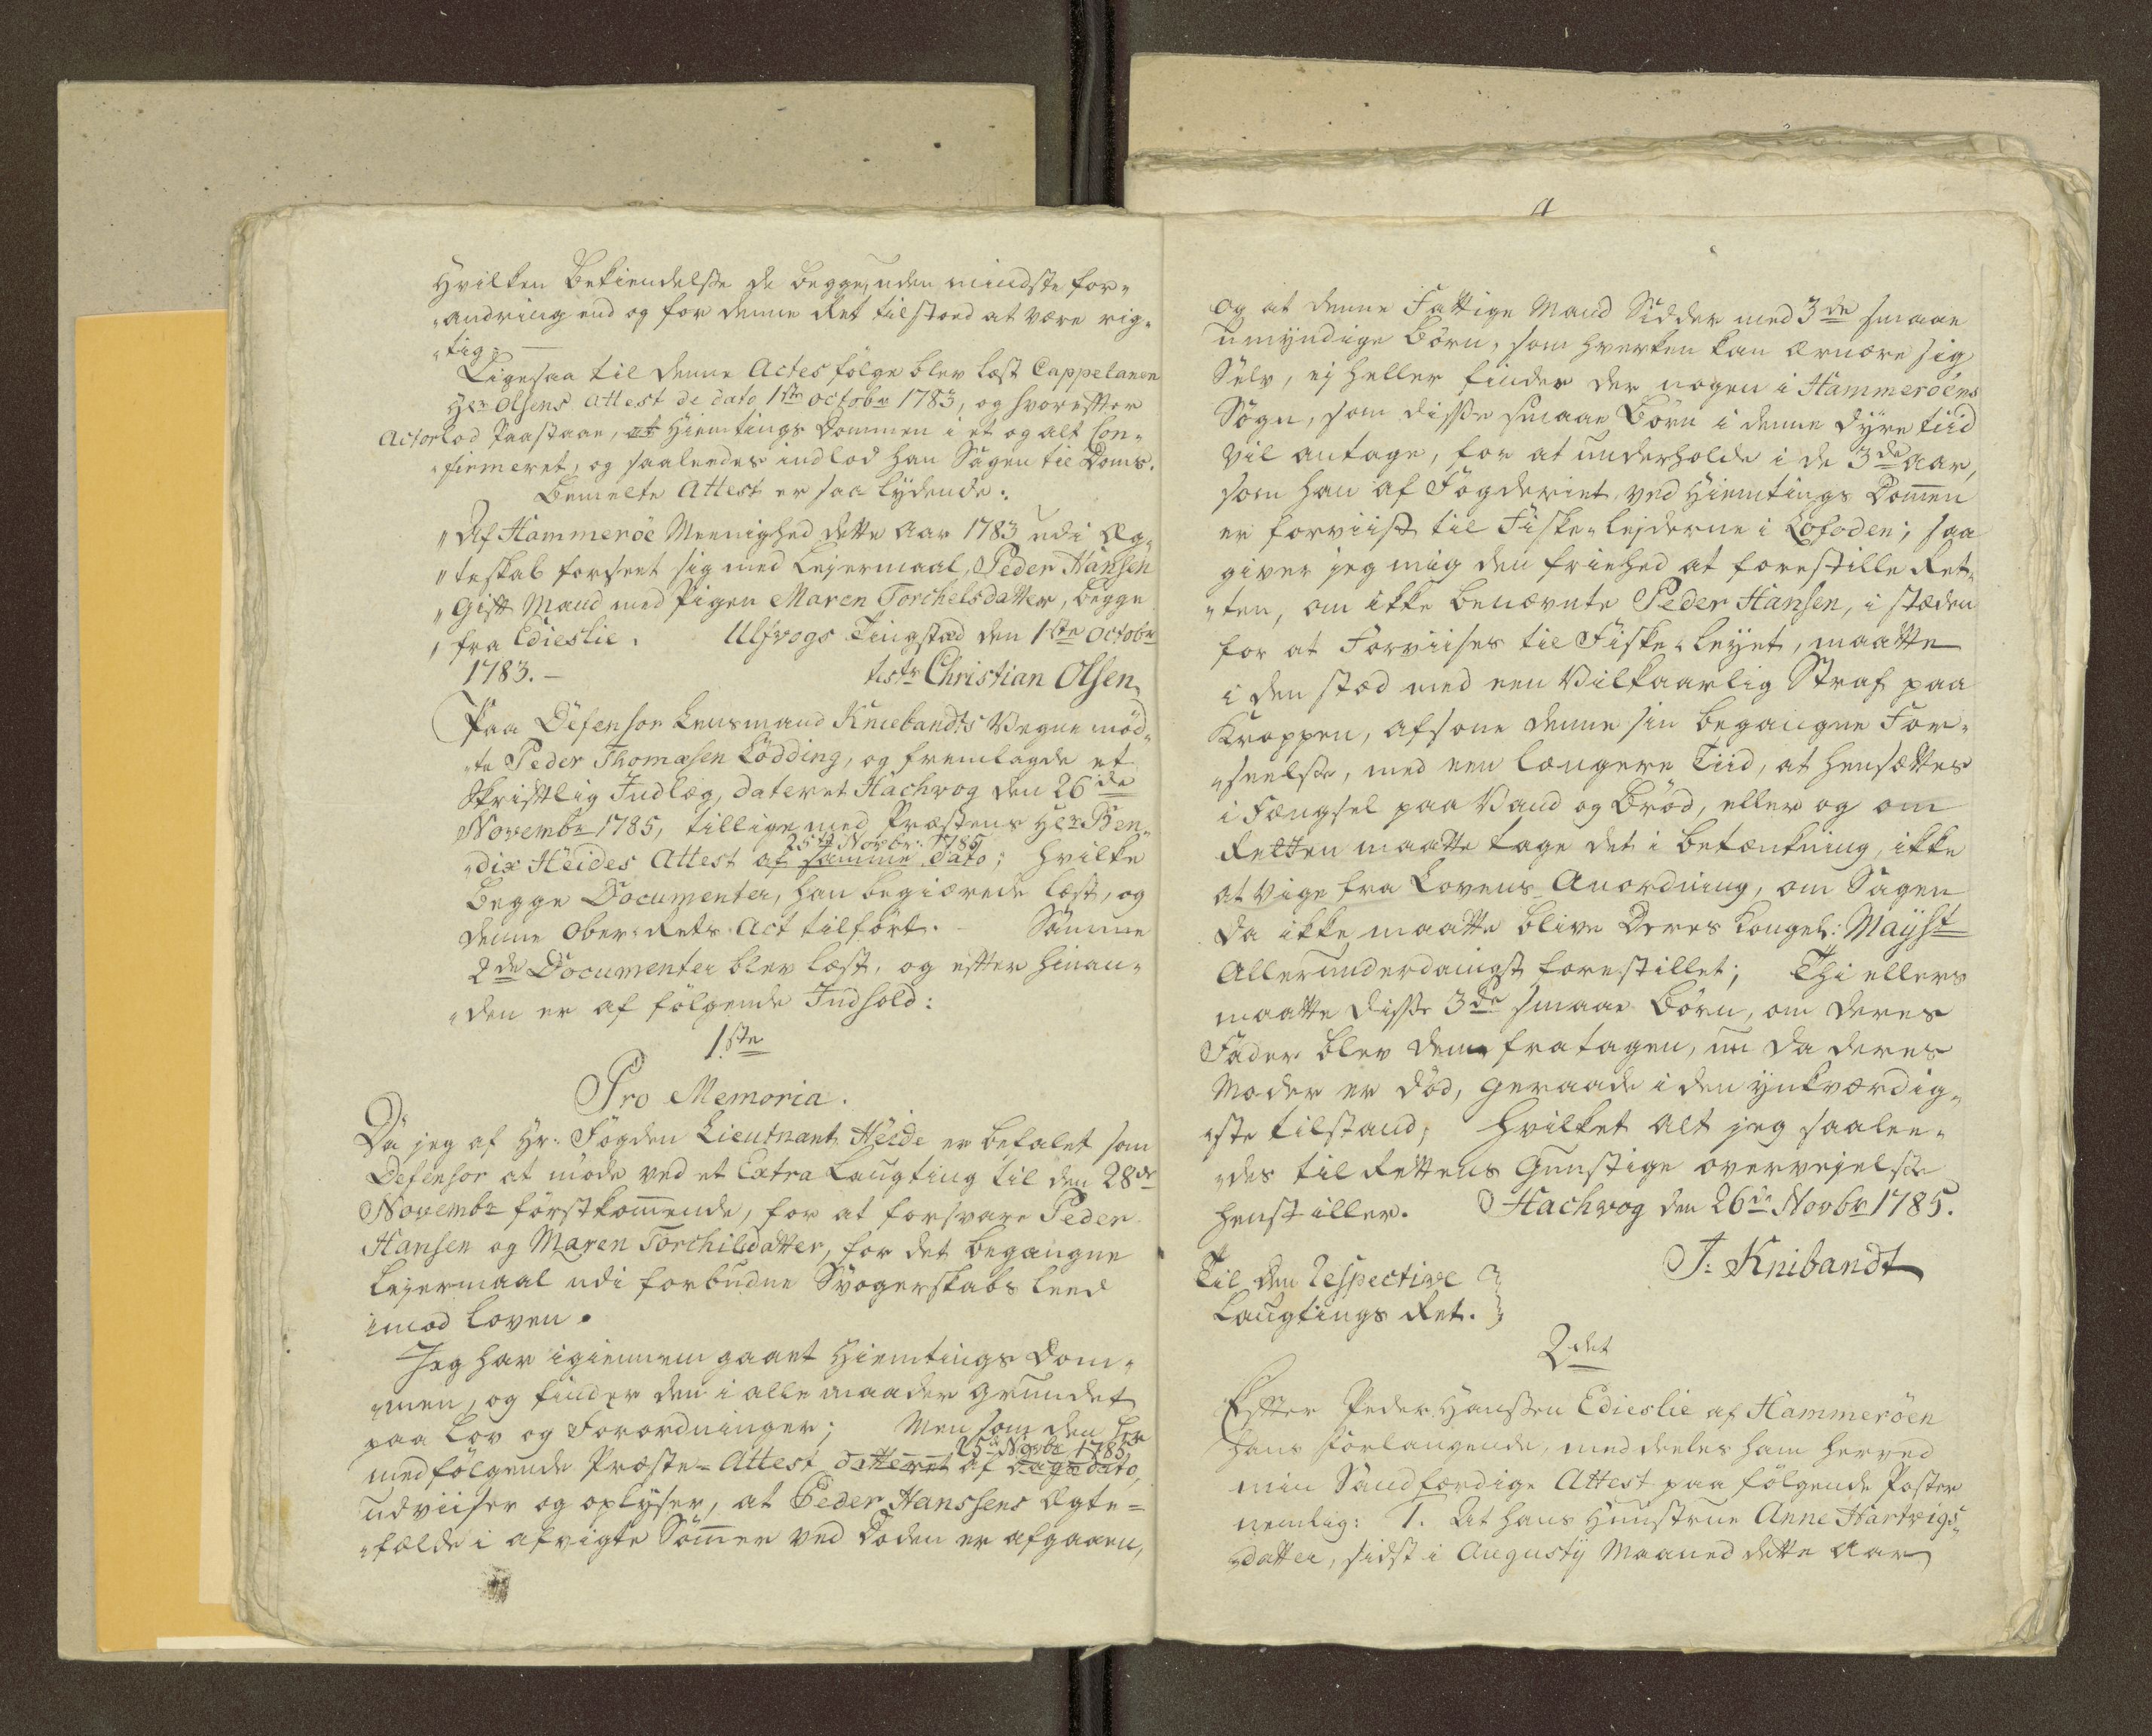 Hvilken Bekiendelse de begge, uden mindste for„
„andring end og for denne Ret tilstoed at være rig„
„tig. —
Ligesaa til denne Actes følge blev læst Cappelanen
Hr: Olsens Attest de dato 1ste octobr 1783, og hvoreffter
Actor lod Paastaae, at Hiemtings Dommen i et og alt Con„
„firmeret, og saaleedes indlod han Sagen til Doms.
Bemelte Attest er saa lydende:
„Af Hammeröe Meenighed dette Aar 1783 udi Æg„
„teskab forseet sig med Lejermaal, Peder Hansen
„Gift Mand med Pigen Maren Torchelsdatter, begge
„fra Edieslie. Ulfvogs Tingstæd den 1ste Octobr
1783. —
test: Christian Olsen.
Paa Defensor Lensmand Kniebandts Vegne mød„
„te Peder Thomæsen Lödding, og fremlagde et
Skriftlig Indlæg, dateret Hachvog den 26de
Novembr 1785, tillige med Præstens Hr: Ben„
25de Novbr: 1785
„dix Heides Attest af samme dato; hvilke
begge Documenter, han begiærede læst, og
denne Ober-Rets Act tilført. - Samme
2de Documenter blev læst, og efter hinan„
„den er af følgende Indhold:
1ste
Pro Memoria.
Da jeg af Hr: Fogden Lieutnant Heide er befalet som
Defensor at møde ved et Extra Laugting til den 28de
Novembr førstkommende, for at forsvare Peder
Hansen og Maren Torchilsdatter, for det begangne
Lejermaal udi forbudne Svogerskabs leed
imod Loven.
Jeg har igiennem gaaet Hiemtings Dom„
„men, og finder den i alle maader grundet
paa Lov og Forordninger; Men som den her
25de Novbr 1785
medfølgende Præste-Attest datteret af dags dato,
udviiser og oplyser, at Peder Hanssens Ægte=
„fælde i afvigte Sommer ved Døden er afgaaen,
4
og at denne Fattige Mand Sidder med 3de smaae
umyndige Børn, som hverken kan ernære sig
Selv, ej heller findes der nogen i Hammeröens
Sogn, som disse smaae Børn i denne dyre tiid
vil antage, for at underholde i de 3de Aar,
som han af Fogderiet, ved Hiemtings Dommen
er forviist til Fiske-lejderne i Lofoden; saa
giver jeg mig den friehed at forestille Ret„
„ten, om ikke benævnte Peder Hansen, i stæden
for at Forviises til Fiske-lejet, maatte
i den stæd med een Vilkaarlig Straf paa
Kroppen, afsone denne sin begangne For„
„seelse, med een længere Tiid, at hensættes
i Fængsel paa Vand og Brød, eller og om
Retten maatte tage det i betænkning, ikke
at vige fra Lovens Anordning, om Sagen
da ikke maatte blive Deres Kongel: Mayst
Allerunderdanigst forestillet; Thi ellers
maatte disse 3de smaae Børn, om deres
Fader blev dem fratagen, nu da deres
Moder er død, geraade i den ynkværdig„
„ste tilstand, hvilket alt jeg saalee„
„des til Rettens Gunstige overvejelse
henstiller. Hachvog den 26de Novbr 1785.
J: Knibandt
Til den respective
Laugtings Ret.
2det
Efter Peder Hanssen Edieslie af Hammeröen
hans forlangende, meddeeles ham herved
min Sandfærdige Attest paa følgende Poster
nemlig: 1. At hans Huustrue Anne Hartvigs„
„datter, sidst i Augusty Maaned dette Aar